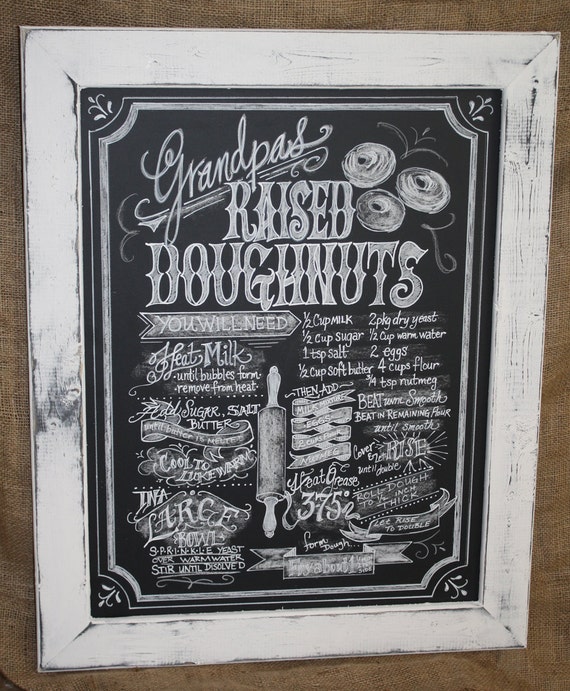 Grandpas
RAISED
DOUGHNUTS
YOU WILL NEED
½ Cup MILK
½ Cup sugar
1 tsp salt
½ Cup soft butter
2 pkg dry yeast
½ Cup warm water
2 eggs
4 cups flour
¾ tsp nutmeg
Heat Milk
-until bubbles form-
remove from heat.
Add Sugar, SALT
BUTTER
until butter is melted
COOL TO
LUKEWARM
IN A
LARGE
BOWL
SPRINKLE YEAST
OVER WARM WATER
STIR UNTIL DISOLVED
THEN-ADD
MILK MIXTURE
EGGS
2 CUPS FLOUR
& NUTMEG
BEAT until Smooth
BEAT IN REMAINING FLOUR
until smooth
Cover & let RISE
until double
Heat Grease
375°
ROLL DOUGH
TO ½ INCH
THICK
LET RISE TO
DOUBLE
form
Dough...
Fry about 1